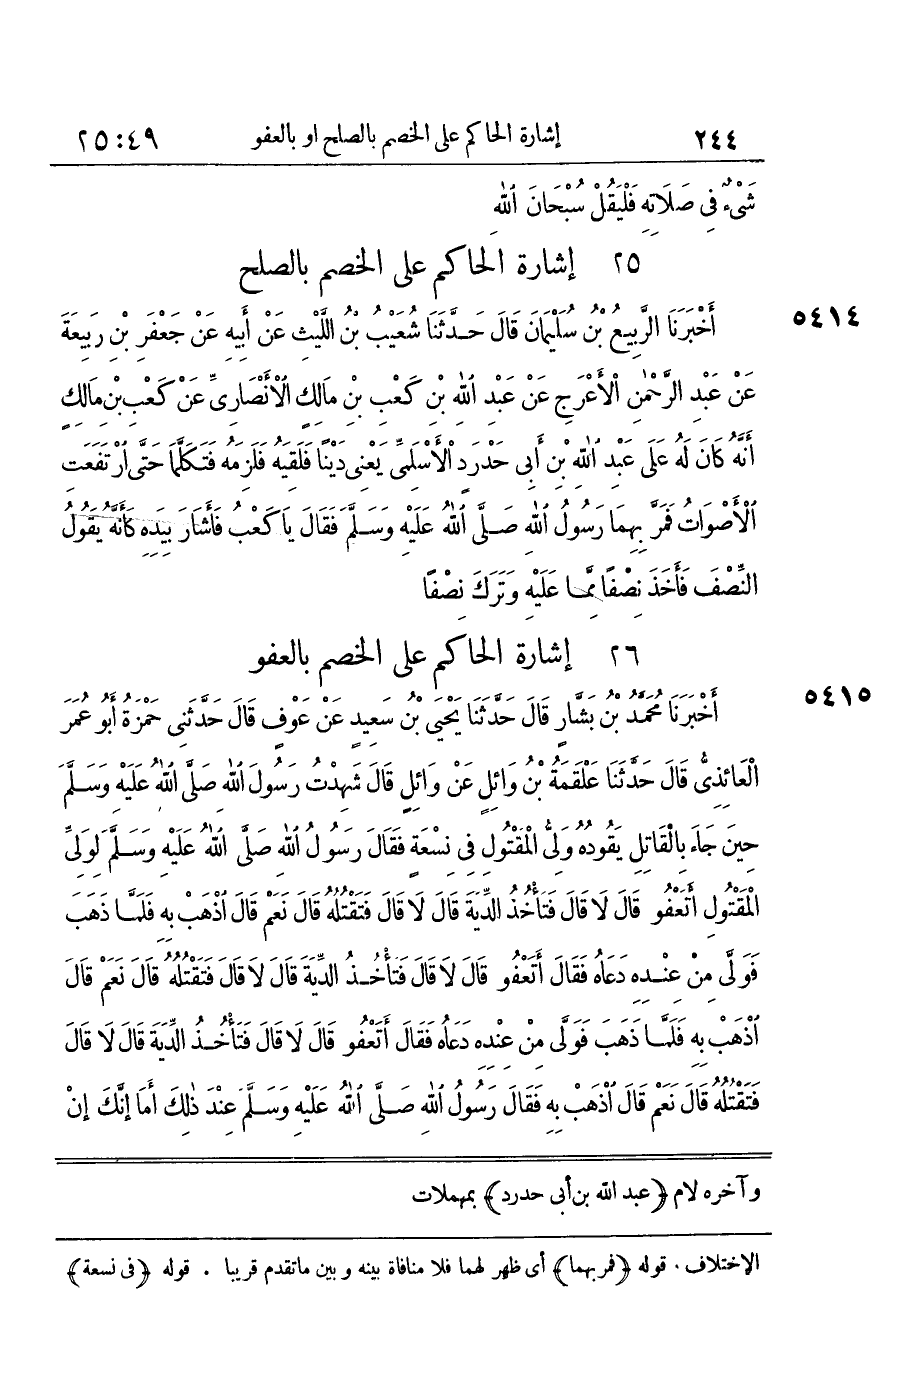 ٢٤٤ إشارة الحاكم على الخصم بالصلح او بالعفو ٢٥:٤٩
شَىْءٌ فِى صَلَاتِهِ فَلْيَقُلْ سُبْحَانَ ٱللّٰهِ
٢٥ إشارة الحاكم على الخصم بالصلح
٥٤١٤ أَخْبَرَنَا الرَّبِيعُ بْنُ سُلَيْمَانَ قَالَ حَدَّثَنَا شُعَيْبُ بْنُ اللَّيْثِ عَنْ أَبِيهِ عَنْ جَعْفَرِ بْنِ رَبِيعَةَ
عَنْ عَبْدِ الرَّحْمٰنِ الْأَعْرَجِ عَنْ عَبْدِ ٱللّٰهِ بْنِ كَعْبِ بْنِ مَالِكٍ الْأَنْصَارِىِّ عَنْ كَعْبِ بْنِ مَالِكٍ
أَنَّهُ كَانَ لَهُ عَلَى عَبْدِ ٱللّٰهِ بْنِ أَبِى حَدْرَدٍ الْأَسْلَمِىِّ يَعْنِى دَيْنًا فَلَقِيَهُ فَلَزِمَهُ فَتَكَلَّمَا حَتَّى ٱرْتَفَعَتِ
ٱلْأَصْوَاتُ فَمَرَّ بِهِمَا رَسُولُ ٱللّٰهِ صَلَّى ٱللّٰهُ عَلَيْهِ وَسَلَّمَ فَقَالَ يَا كَعْبُ فَأَشَارَ بِيَدِهِ كَأَنَّهُ يَقُولُ
النِّصْفَ فَأَخَذَ نِصْفًا مِمَّا عَلَيْهِ وَتَرَكَ نِصْفًا
٢٦ إشارة الحاكم على الخصم بالعفو
٥٤١٥ أَخْبَرَنَا مُحَمَّدُ بْنُ بَشَّارٍ قَالَ حَدَّثَنَا يَحْيَى بْنُ سَعِيدٍ عَنْ عَوْفٍ قَالَ حَدَّثَنِى حَمْزَةُ أَبُو عُمَرَ
الْعَائِذِىُّ قَالَ حَدَّثَنَا عَلْقَمَةُ بْنُ وَائِلٍ عَنْ وَائِلٍ قَالَ شَهِدْتُ رَسُولَ ٱللّٰهِ صَلَّى ٱللّٰهُ عَلَيْهِ وَسَلَّمَ
حِينَ جَاءَ بِالْقَاتِلِ يَقُودُهُ وَلِىُّ الْمَقْتُولِ فِى نِسْعَةٍ فَقَالَ رَسُولُ ٱللّٰهِ صَلَّى ٱللّٰهُ عَلَيْهِ وَسَلَّمَ لِوَلِىِّ
الْمَقْتُولِ أَتَعْفُو قَالَ لَا قَالَ فَتَأْخُذُ الدِّيَةَ قَالَ لَا قَالَ فَتَقْتُلُهُ قَالَ نَعَمْ قَالَ ٱذْهَبْ بِهِ فَلَمَّا ذَهَبَ
فَوَلَّى مِنْ عِنْدِهِ دَعَاهُ فَقَالَ أَتَعْفُو قَالَ لَا قَالَ فَتَأْخُذُ الدِّيَةَ قَالَ لَا قَالَ فَتَقْتُلُهُ قَالَ نَعَمْ قَالَ
ٱذْهَبْ بِهِ فَلَمَّا ذَهَبَ فَوَلَّى مِنْ عِنْدِهِ دَعَاهُ فَقَالَ أَتَعْفُو قَالَ لَا قَالَ فَتَأْخُذُ الدِّيَةَ قَالَ لَا قَالَ
فَتَقْتُلُهُ قَالَ نَعَمْ قَالَ ٱذْهَبْ بِهِ فَقَالَ رَسُولُ ٱللّٰهِ صَلَّى ٱللّٰهُ عَلَيْهِ وَسَلَّمَ عِنْدَ ذٰلِكَ أَمَا إِنَّكَ إِنْ
وآخره لام ﴿عبد الله بن أبى حدرد﴾ بمهملات
الاختلاف. قوله ﴿فمر بهما﴾ أى ظهر لهما فلا منافاة بينه وبين ما تقدم قريبا . قوله ﴿فى نسعة﴾